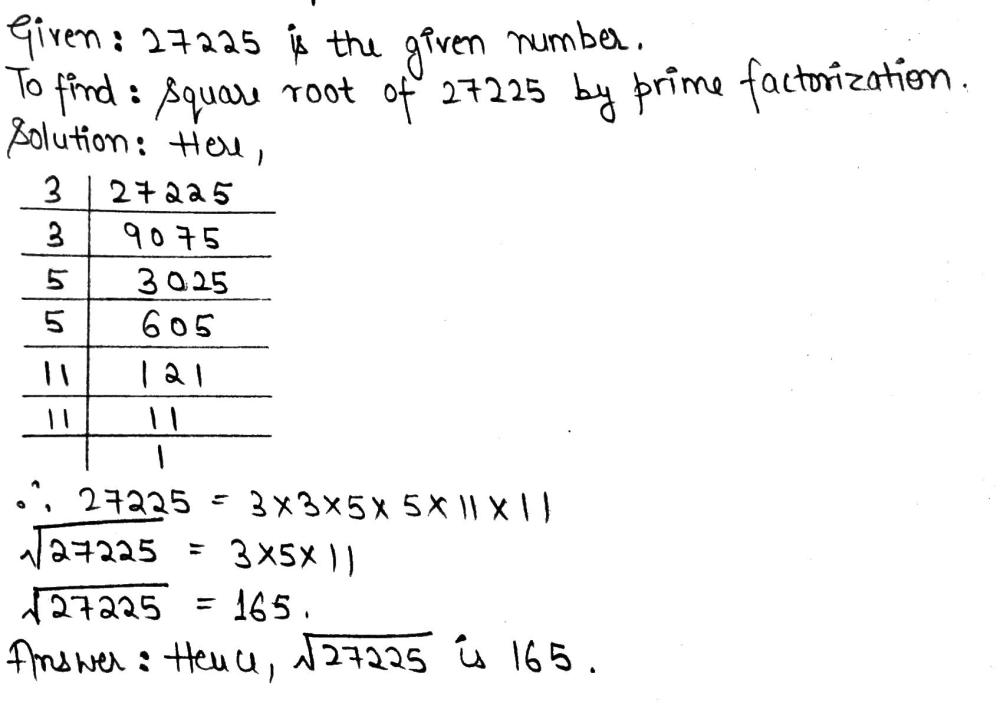 Given: 27225 is the given number.
To find: Square root of 27225 by prime factorization.
Solution: Here,
3 | 27225
3 | 9075
5 | 3025
5 | 605
11 | 121
11 | 11
| 1
∴ 27225 = 3×3×5×5×11×11
√27225 = 3×5×11
√27225 = 165.
Answer: Hence, √27225 is 165.